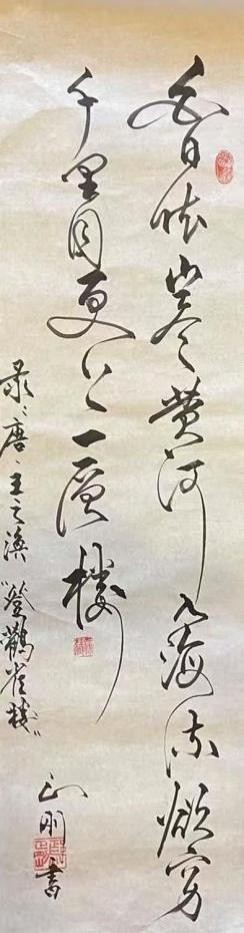 白日依山尽黄河入海流欲穷
千里目更上一层楼
录唐王之涣“登鹳雀楼”
刚書